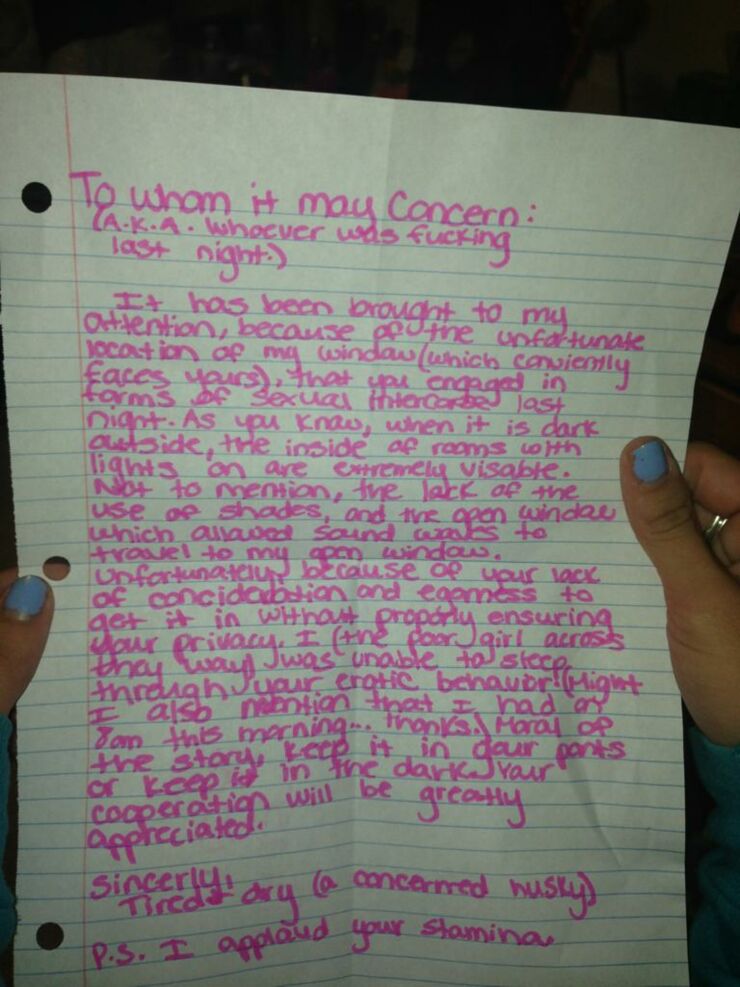 To whom it may Concern:
(A.K.A. whoever was fucking
last night.)
It has been brought to my
attention, because of the unfortunate
location of my window (which conviently
faces yours), that you engaged in
forms of sexual intercorse last
night. As you know, when it is dark
outside, the inside of rooms with
lights on are extremely visable.
Not to mention, the lack of the
use of shades, and the open window
which allowed sound waves to
travel to my open window.
Unfortunately, because of your lack
of concideration and egarness to
get it in without properly ensuring
your privacy, I (the poor girl across
they way) was unable to sleep
through your erotic behavior! (Might
I also mention that I had an
8am this morning... thanks.) Moral of
the story, keep it in your pants
or keep it in the dark. Your
cooperation will be greatly
appreciated.
Sincerly,
Tired & dry (a concerned husky)
P.S. I applaud your stamina